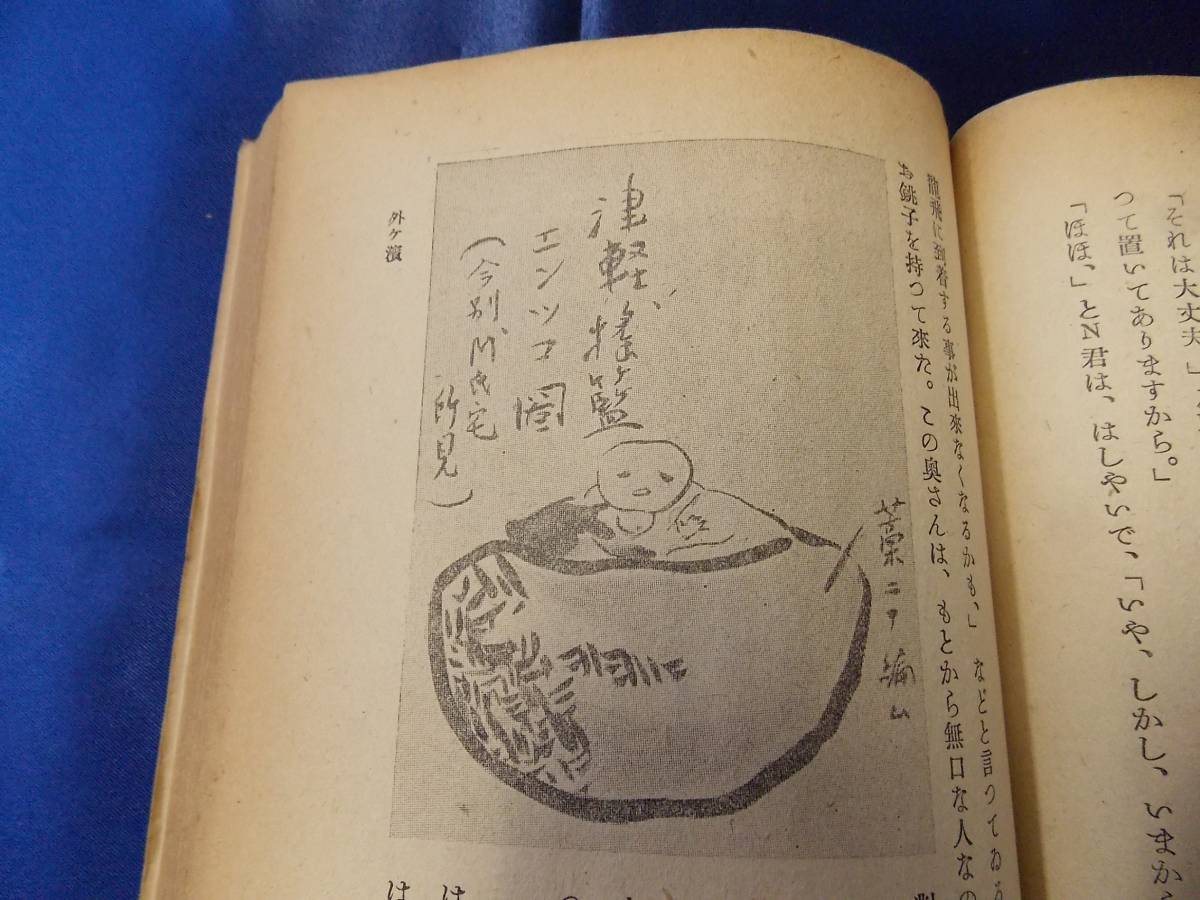 「それは大丈夫」
つて置いてありますから。」
「ほほ、」とN君は、はしやいで、「いや、しかし、いまか
龍飛に到着する事が出來なくなるかも、」などと言つてゐ
お銚子を持つて來た。この奥さんは、もとから無口な人なの
津軽揺籃
エンツコ図
(今別、M氏宅
所見)
藁ニテ編ム
外ヶ濱
は
は